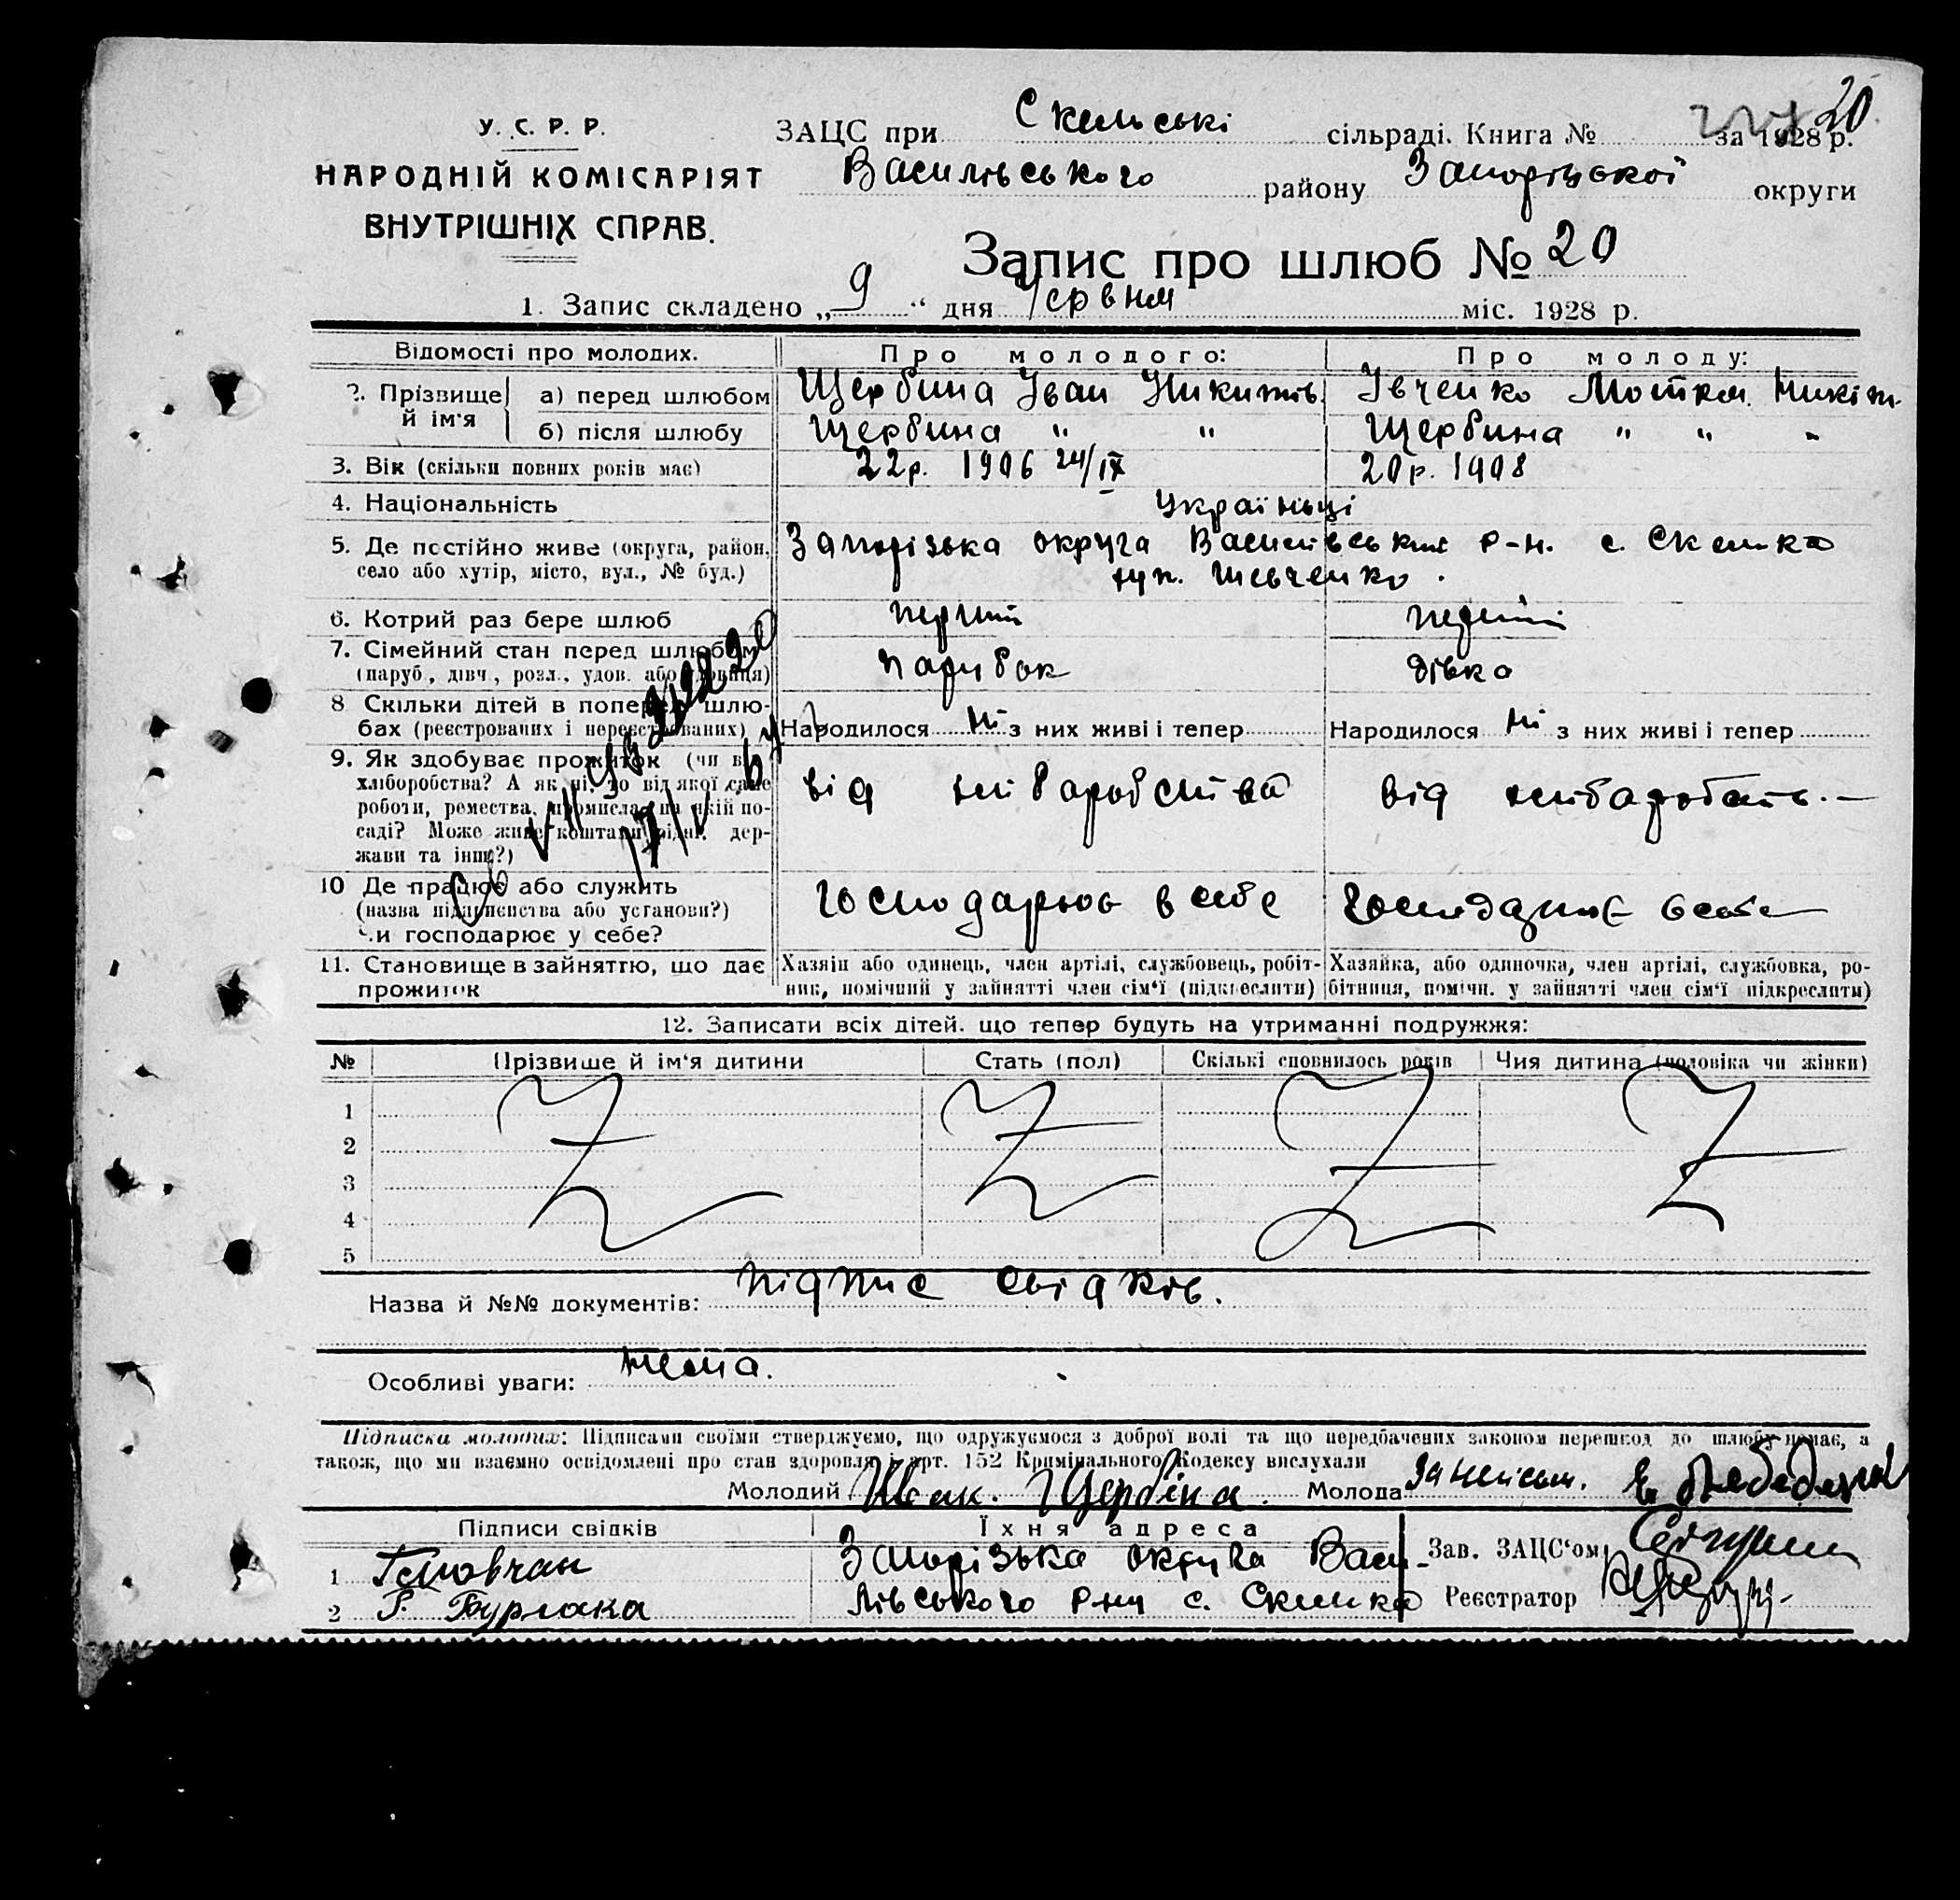 У. С. Р. Р.
НАРОДНІЙ КОМІСАРІЯТ
ВНУТРІШНІХ СПРАВ.
20
ЗАЦС при Скельські сільраді. Книга № за 1928 р.
Василівського району Запорізької округи
Запис про шлюб № 20
1. Запис складено „9“ дня Червня міс. 1928 р.
Відомості про молодих. Про молодого: Про молоду:
2. Прізвище й ім'я а) перед шлюбом Щербина Іван Никитів. Івченко Мотря Никіт.
б) після шлюбу Щербина " " Щербина " " "
3. Вік (скільки повних років має) 22р. 1906 24/IX 20р. 1908
4. Національність Українці
5. Де постійно живе (округа, район, Запорізька округа Василівський р-н. с. Скелька
село або хутір, місто, вул., № буд.) вул. Шевченко.
6. Котрий раз бере шлюб перший перший
7. Сімейний стан перед шлюбом парубок дівка
(паруб., дівч., розл., удов. або удовиця)
8 Скільки дітей в попередн. шлю-
бах (реєстрованих і нереєстрованих) Народилося ні з них живі і тепер Народилося ні з них живі і тепер
9. Як здобуває прожиток (чи від
хліборобства? А як ні, то від якої саме від хліборобства від хліборобств.
роботи, ремества, промисла, на якій по-
саді? Може живе коштами рідні, дер-
жави та інш?)
10 Де працює або служить
(назва підприємства або установи?) господарює в себе господарює в себе
Чи господарює у себе?
11. Становище в зайняттю, що дає Хазяін або одинець, член артілі, службовець, робіт- Хазяйка, або одиночка, член артілі, службовка, ро-
прожиток ник, помічний у зайнятті член сім'ї (підкреслити) бітниця, помічн. у зайнятті член сім'ї підкреслити)
12. Записати всіх дітей. що тепер будуть на утриманні подружжя:
№ Прізвище й ім'я дитини Стать (пол) Скількі сповнилось років Чия дитина (чоловіка чи жінки)
1
2
3
4
5
Назва й №№ документів: підпис свідків.
Особливі уваги: нема.
Підписка молодих: Підписами своїми стверджуємо, що одружуємося з доброї волі та що передбачених законом перешкод до шлюбу немає, а
також, що ми взаємно освідомлені про стан здоровля і арт. 152 Кримінального Кодексу вислухали
Молодий Іван. Щербіна. Молода
Підписи свідків Їхня адреса Зав. ЗАЦС'ом
1 Запорізька округа Васи-
2 Бурлака лівського р-ну с. Скелька Реєстратор